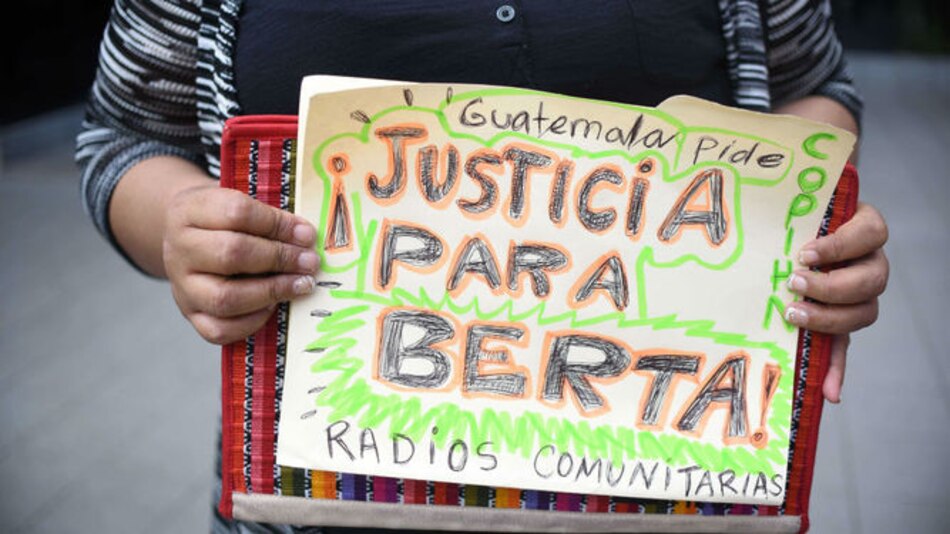 Guatemala Pide
¡JUSTICIA
PARA
BERTA!
RADIOS COMUNITARIAS
COPIHN